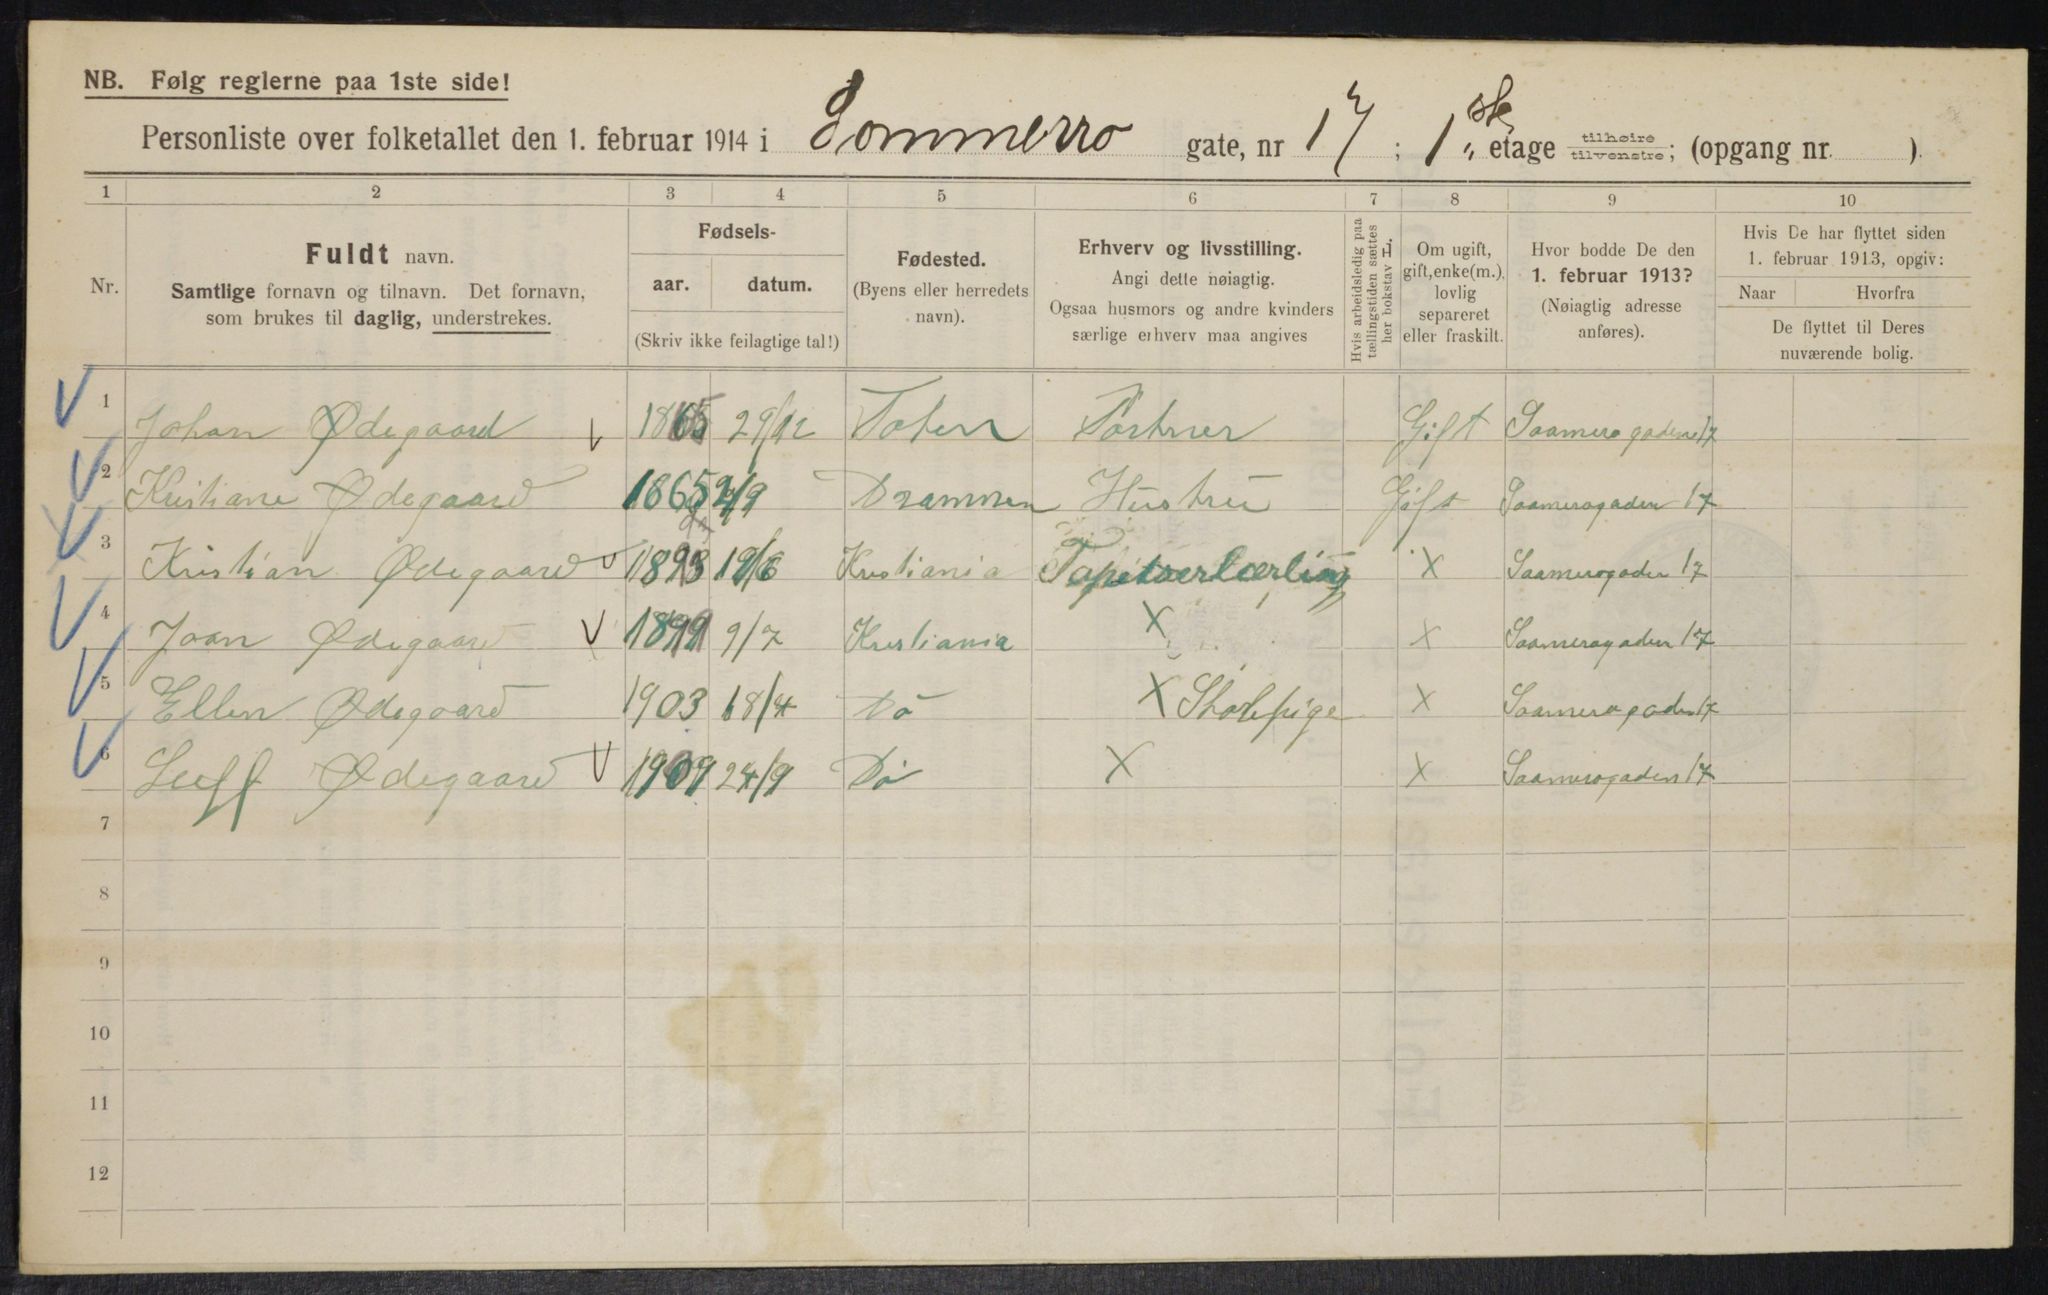 NB. Følg reglerne paa 1ste side!
Personliste over folketallet den 1. februar 1914 i Sommerro gate, nr 17 ; 1ste etage tilhøire tilvenstre; (opgang nr. ).
1 2 3 4 5 6 7 8 9 10
Nr.
Fuldt navn.
Samtlige fornavn og tilnavn. Det fornavn,
som brukes til daglig, understrekes.
Fødsels-
aar. datum.
(Skriv ikke feilagtige tal!)
Fødested.
(Byens eller herredets
navn).
Erhverv og livsstilling.
Angi dette nøiagtig.
Ogsaa husmors og andre kvinders
særlige erhverv maa angives
Hvis arbeidsledig paa
tællingstiden sættes
her bokstav L.
Om ugift,
gift, enke(m.),
lovlig
separeret
eller fraskilt.
Hvor bodde De den
1. februar 1913?
(Nøiagtig adresse
anføres).
Hvis De har flyttet siden
1. februar 1913, opgiv:
Naar Hvorfra
De flyttet til Deres
nuværende bolig.
1 Johan Ødegaard 1865 29/12 Toten Gift Saamerogaden 17
2 Kristiane Ødegaard 1865 /9 Drammen Hustru Gift Saamerogaden 17
3 Kristian Ødegaard 1893 19/6 Kristiania Tapetserlærling X Saamerogaden 17
4 Joan Ødegaard 1899 9/7 Kristiania X X Saamerogaden 17
5 Ellen Ødegaard 1903 18/4 Do X Skolepige X Saamerogaden 17
6 Leiff Ødegaard 1909 24/9 Do X X Saamerogaden 17
7
8
9
10
11
12